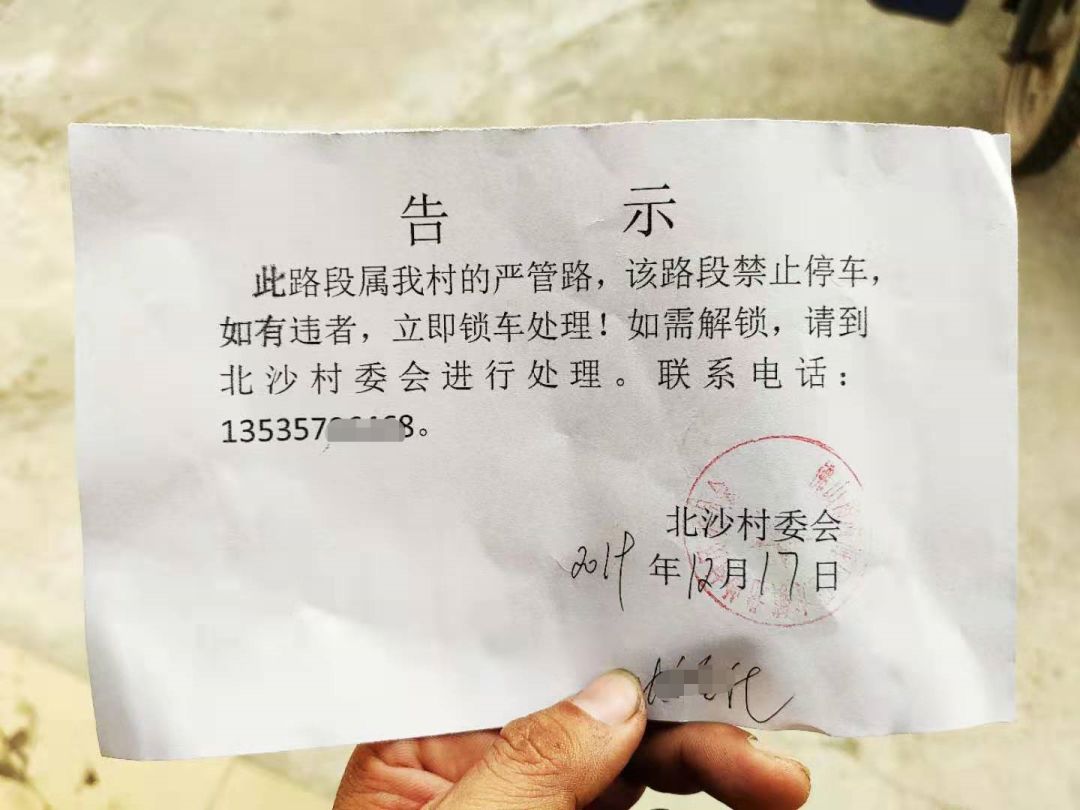 告 示
此路段属我村的严管路，该路段禁止停车，
如有违者，立即锁车处理！如需解锁，请到
北沙村委会进行处理。联系电话：
135357 8。
北沙村委会
2019年12月17日